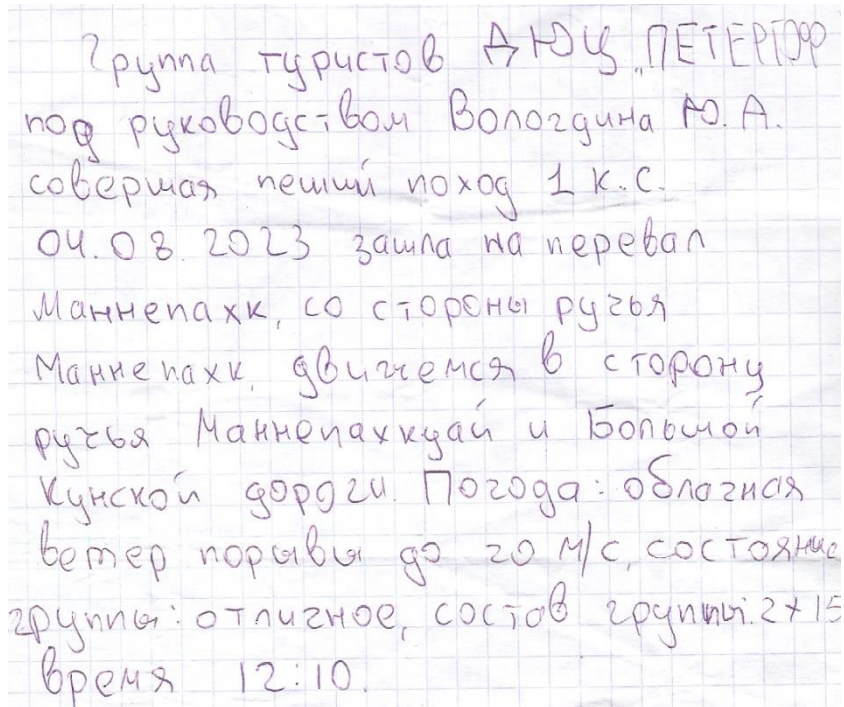 Группа туристов ДЮЦ „ПЕТЕРГОФ
под руководством Вологдина Ю.А.
совершая пеший поход 1 К.С.
04.08.2023 зашла на перевал
Маннепахк, со стороны ручья
Маннепахк, движемся в сторону
ручья Маннепахкуай и Большой
Кунской дороги. Погода: облачная
ветер порывы до 20 м/с, состояние
группы: отличное, состав группы: 2+15
время 12:10.